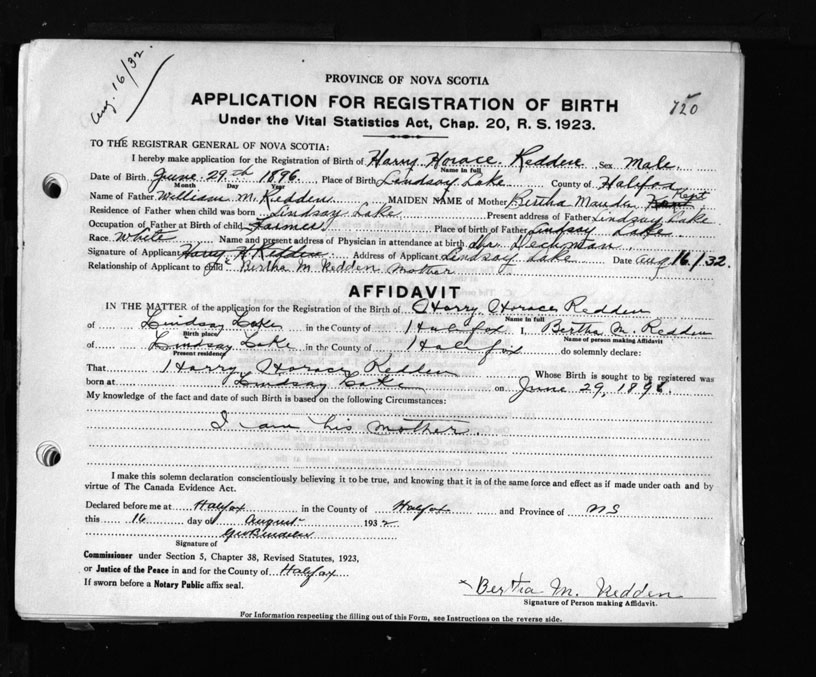 Aug. 16/32.
PROVINCE OF NOVA SCOTIA
APPLICATION FOR REGISTRATION OF BIRTH
720
Under the Vital Statistics Act, Chap. 20, R. S. 1923.
TO THE REGISTRAR GENERAL OF NOVA SCOTIA:
I hereby make application for the Registration of Birth of Harry Horace Redden Sex Male
Name in full
Date of Birth June 29th 1896 Place of Birth Lindsay Lake County of Halifax
Month Day Year
Name of Father William M. Redden MAIDEN NAME of Mother Bertha Maude
Residence of Father when child was born Lindsay Lake Present address of Father Lindsay Lake
Occupation of Father at Birth of child Farmer Place of birth of Father Lindsay Lake
Race White Name and present address of Physician in attendance at birth Dr.
Signature of Applicant Harry H. Redden Address of Applicant Lindsay Lake Date Aug 16/32.
Relationship of Applicant to child Bertha M Redden mother
AFFIDAVIT
IN THE MATTER of the application for the Registration of the Birth of Harry Horace Redden
Name in full
of Lindsay Lake in the County of Halifax I, Bertha M. Redden
Birth place Name of person making Affidavit
of Lindsay Lake in the County of Halifax do solemnly declare:
Present residence
That Harry Horace Redden Whose Birth is sought to be registered was
born at Lindsay Lake on June 29, 1896
My knowledge of the fact and date of such Birth is based on the following Circumstances:
I am his mother
I make this solemn declaration conscientiously believing it to be true, and knowing that it is of the same force and effect as if made under oath and by
virtue of The Canada Evidence Act.
Declared before me at Halifax in the County of Halifax and Province of NS
this 16 day of August 1932
Signature of
Commissioner under Section 5, Chapter 38, Revised Statutes, 1923,
or Justice of the Peace in and for the County of Halifax
If sworn before a Notary Public affix seal.
x Bertha M. Redden
Signature of Person making Affidavit.
For Information respecting the filling out of this Form, see Instructions on the reverse side.